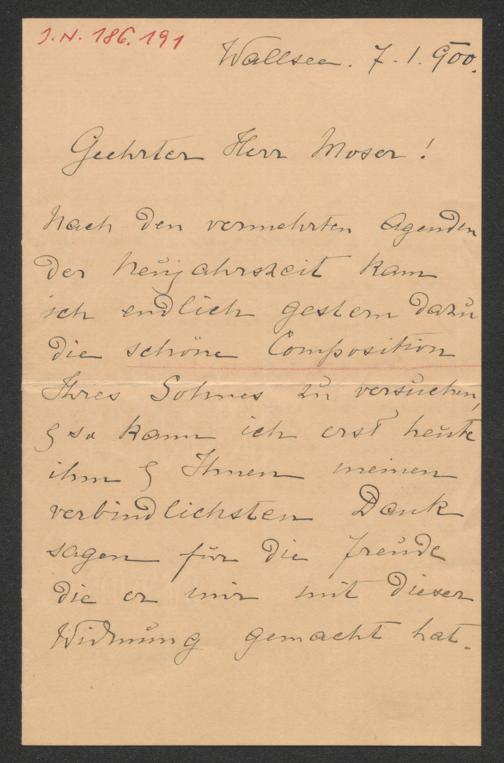 J.N. 186.191
Wallsee. 7.1.900.
Geehrter Herr Moser!
Nach den vermehrten Agenden
der Neujahrszeit kam
ich endlich gestern dazu
die schöne Composition
Ihres Sohnes zu versuchen,
& so kann ich erst heute
ihm & Ihnen meinen
verbindlichsten Dank
sagen für die Freude
die er mir mit dieser
Widmung gemacht hat.